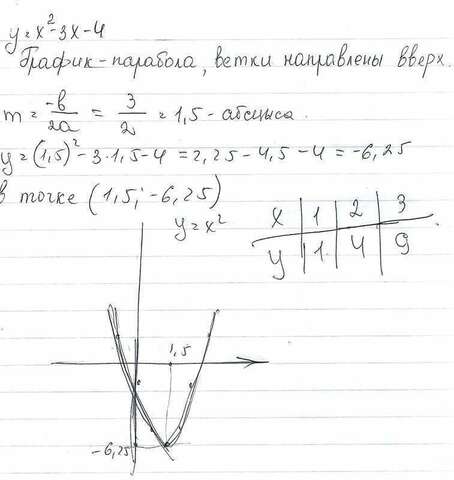 y = x² - 3x - 4
График - парабола, ветки направлены вверх.
m = -b/2a = 3/2 = 1,5 - абсцыса.
y = (1,5)² - 3·1,5 - 4 = 2,25 - 4,5 - 4 = -6,25
в точке (1,5; -6,25)
y = x²
x | 1 | 2 | 3
y | 1 | 4 | 9
1,5
-6,25